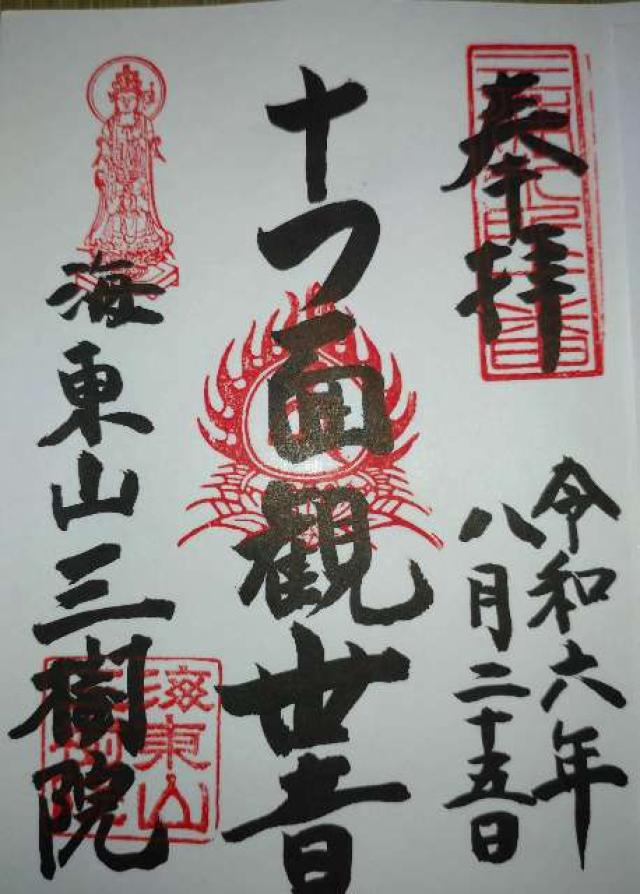 奉拝
令和六年
八月二十五日
十一面観世音
海東山三樹院
海東山